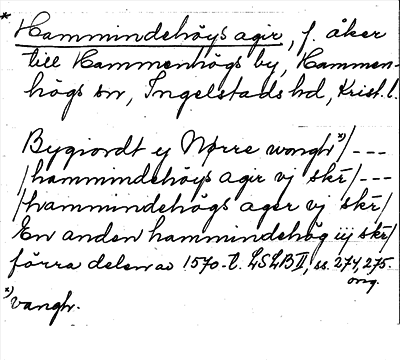 * Hammindehöys agir, f. åker
till Hammenhögs by, Hammen-
högs sn, Ingelstads hd, Krist. l.
Bygiordt ij Nørre wongh x)/---
/hammindehöys agir vj skr̄/---
/hvammindehögs ager vj skr̄/
En anden hammindehög iij skr̄/
förra delen av 1570-t. LSLB II, ss. 274, 275.
orig.
x) vangh.